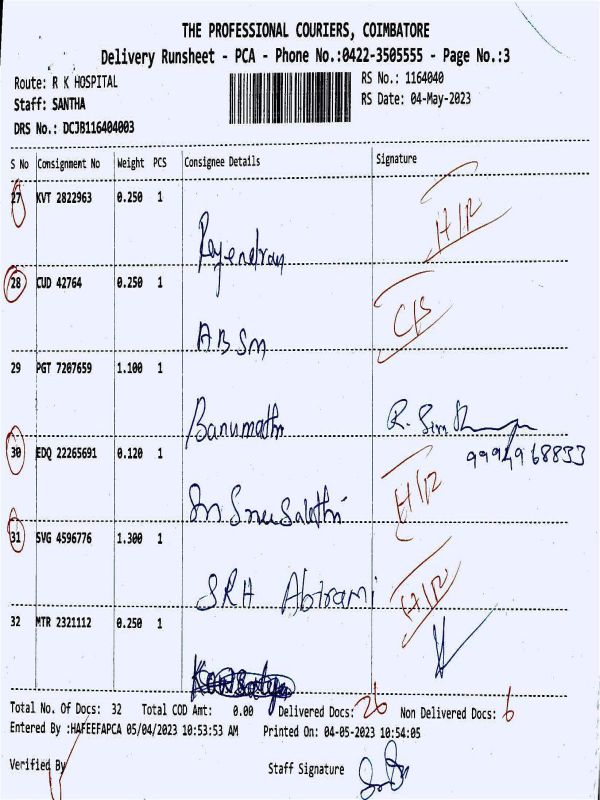 THE PROFESSIONAL COURIERS, COIMBATORE
Delivery Runsheet - PCA - Phone No.:0422-3505555 - Page No.:3
Route: R K HOSPITAL RS No.: 1164040
Staff: SANTHA RS Date: 04-May-2023
DRS No.: DCJB116404003
S No Consignment No Weight PCS Consignee Details Signature
27 KVT 2822963 0.250 1
Rajendran H/R
28 CUD 42764 0.250 1
ABSM C/S
29 PGT 7207659 1.100 1
Banumathi R.
30 EDQ 22265691 0.120 1 9994968833
H/R
31 SVG 4596776 1.300 1
SRH Abirami H/R
32 MTR 2321112 0.250 1
Total No. Of Docs: 32 Total COD Amt: 0.00 Delivered Docs: 26 Non Delivered Docs: 6
Entered By :HAFEEFAPCA 05/04/2023 10:53:53 AM Printed On: 04-05-2023 10:54:05
Verified By Staff Signature